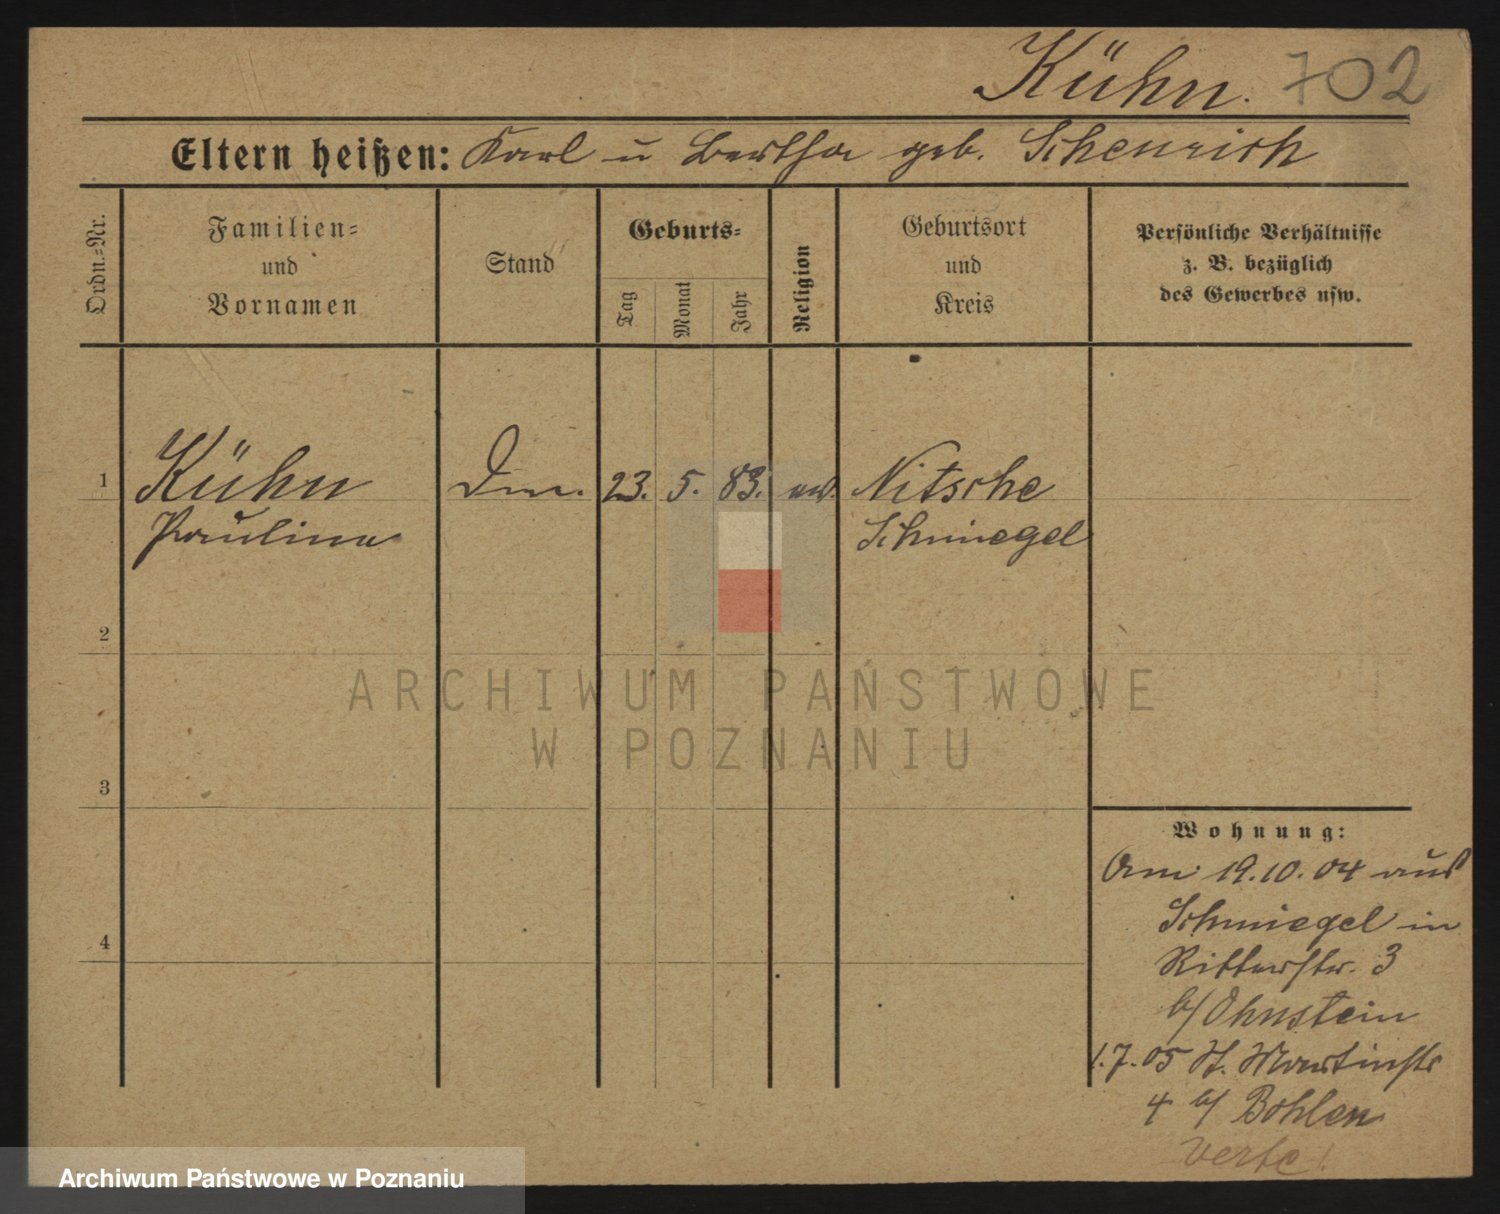 Kühn. 702
Eltern heißen: Karl u Bertha geb. Schenrich
Ordn.=Nr.
Familien=
und
Vornamen
Stand
Geburts=
Tag
Monat
Jahr
Religion
Geburtsort
und
Kreis
Persönliche Verhältnisse
z. B. bezüglich
des Gewerbes usw.
1 Kühn 23. 5. 83. Nitsche
Paulina Schmiegel
2
3
4
Wohnung:
Am 19.10.04 aus
Schmiegel in
Ritterstr. 3
b/Ohnstein
1.7.05 St. Martinstr
4 b/ Bohlen
verte!
ARCHIWUM PAŃSTWOWE
W POZNANIU
Archiwum Państwowe w Poznaniu